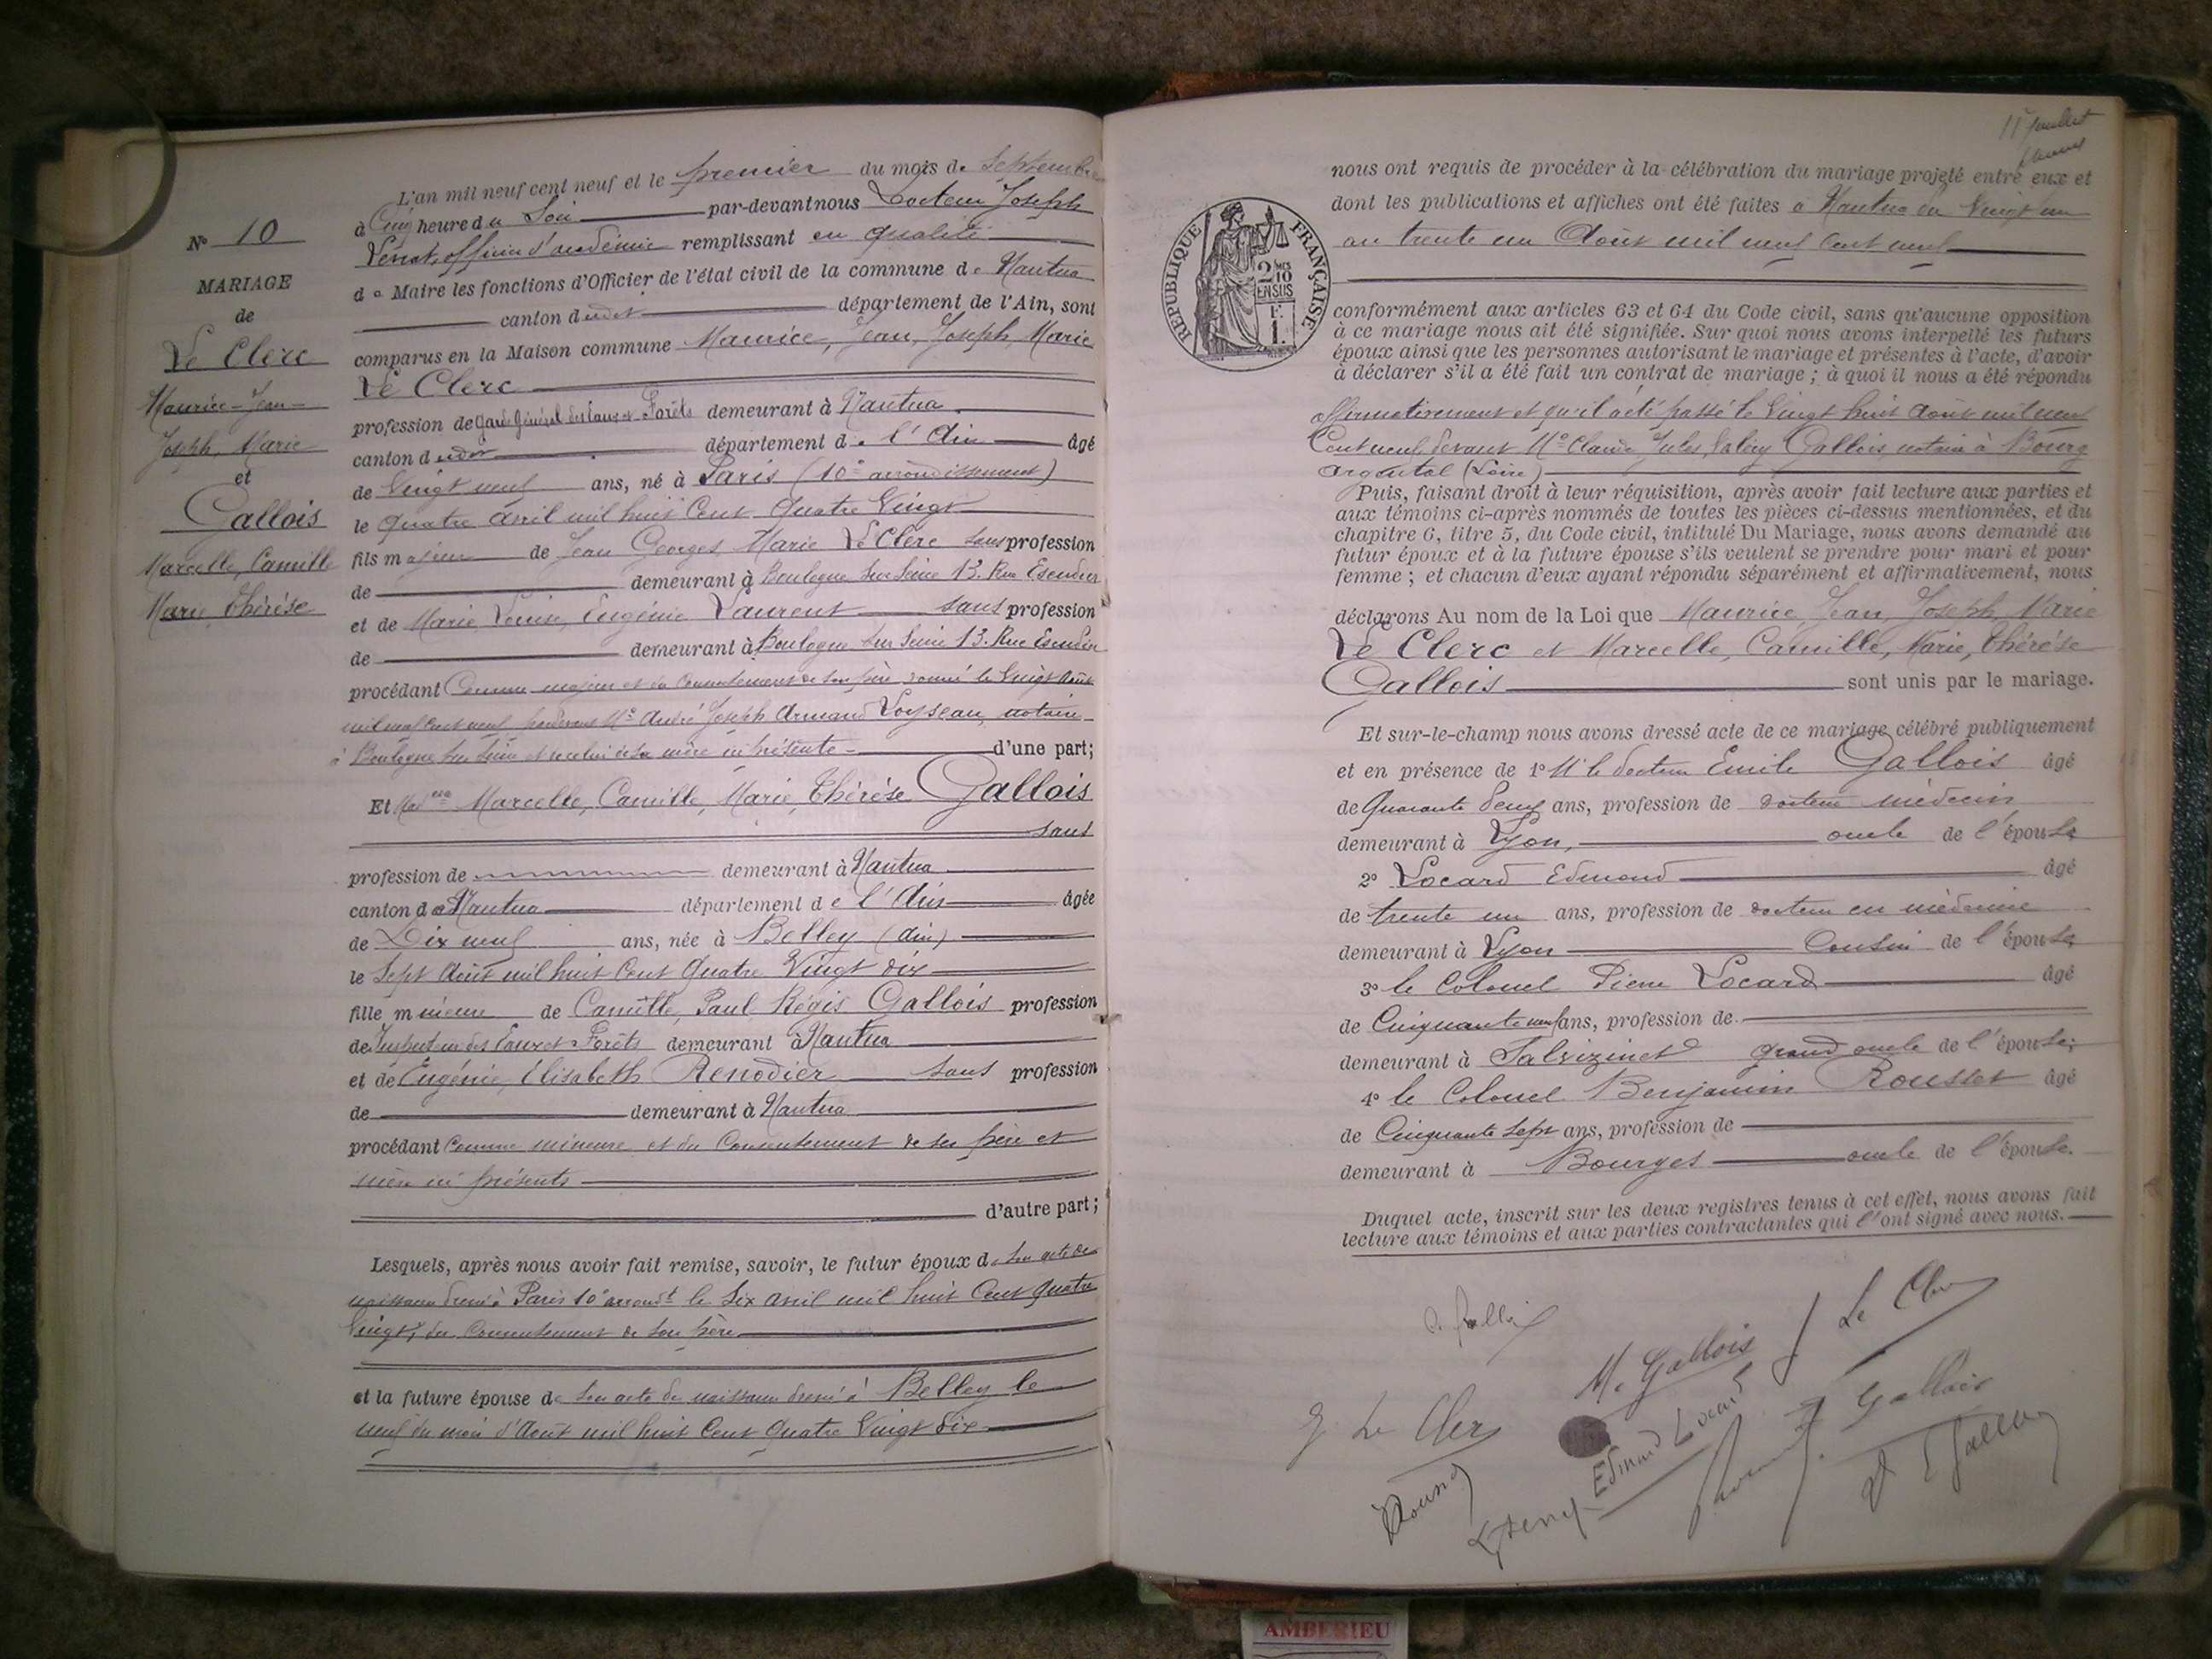 L'an mil neuf cent neuf et le premier du mois de Septembre
à Cinq heure du Soir par-devant nous Docteur Joseph
officier d'académie remplissant en qualité
de Maire les fonctions d'Officier de l'état civil de la commune de Nantua
canton dudit département de l'Ain, sont
comparus en la Maison commune Maurice, Jean, Joseph, Marie
Le Clerc
profession de Garde Général des Eaux et Forêts demeurant à Nantua
canton dudit département de l'Ain âgé
de Vingt neuf ans, né à Paris (10e arrondissement)
le quatre avril mil huit Cent quatre Vingt
fils majeur de Jean Georges Marie Le Clerc sans profession
de demeurant à Boulogne sur Seine 13. Rue Escudier
et de Marie, Louise, Eugénie Laurent sans profession
de demeurant à Boulogne sur Seine 13. Rue Escudier
procédant Comme majeur et du Consentement de son père, donné le Vingt Août
mil neuf cent neuf pardevant Me André Joseph Armand Loyseau, notaire
à Boulogne sur Seine et de celui de sa mère ici présente d'une part;
Et Melle Marcelle, Camille, Marie, Thérèse Gallois
sans
profession de demeurant à Nantua
canton de Nantua département de l'Ain âgée
de Dix neuf ans, née à Belley (Ain)
le Sept Août mil huit Cent quatre Vingt dix
fille mineure de Camille, Paul, Régis Gallois profession
de Inspecteur des Eaux et Forêts demeurant à Nantua
et de Eugénie, Élisabeth Renodier sans profession
de demeurant à Nantua
procédant Comme mineure et du Consentement de ses père et
mère ici présents
d'autre part;
Lesquels, après nous avoir fait remise, savoir, le futur époux de son acte de
naissance dressé à Paris 10e arrondt le Six avril mil huit Cent quatre
Vingt, du Consentement de son père
et la future épouse de son acte de naissance dressé à Belley le
neuf du mois d'Août mil huit Cent quatre Vingt dix
N° 10
MARIAGE
de
Le Clerc
Maurice-Jean-
Joseph, Marie
et
Gallois
Marcelle, Camille
Marie, Thérèse
nous ont requis de procéder à la célébration du mariage projeté entre eux et
dont les publications et affiches ont été faites à Nantua du Vingt un
au trente un Août mil neuf Cent neuf
RÉPUBLIQUE FRANÇAISE
2 MES 10
EN SUS
F. 1.
conformément aux articles 63 et 64 du Code civil, sans qu'aucune opposition
à ce mariage nous ait été signifiée. Sur quoi nous avons interpellé les futurs
époux ainsi que les personnes autorisant le mariage et présentes à l'acte, d'avoir
à déclarer s'il a été fait un contrat de mariage; à quoi il nous a été répondu
affirmativement et qu'il a été passé le Vingt huit Août mil neuf
Cent neuf devant Me Claude Jules Valéry Gallois notaire à Bourg
Argental (Loire)
Puis, faisant droit à leur réquisition, après avoir fait lecture aux parties et
aux témoins ci-après nommés de toutes les pièces ci-dessus mentionnées, et du
chapitre 6, titre 5, du Code civil, intitulé Du Mariage, nous avons demandé au
futur époux et à la future épouse s'ils veulent se prendre pour mari et pour
femme; et chacun d'eux ayant répondu séparément et affirmativement, nous
déclarons Au nom de la Loi que Maurice, Jean, Joseph, Marie
Le Clerc et Marcelle, Camille, Marie, Thérèse
Gallois sont unis par le mariage.
Et sur-le-champ nous avons dressé acte de ce mariage célébré publiquement
et en présence de 1° Mr le docteur Emile Gallois âgé
de Quarante deux ans, profession de docteur médecin
demeurant à Lyon, oncle de l'épouse
2° Locard Edmond âgé
de trente un ans, profession de docteur en médecine
demeurant à Lyon Cousin de l'épouse
3° le Colonel Pierre Locard âgé
de Cinquante neuf ans, profession de
demeurant à Salvizinet grand oncle de l'épouse;
4° le Colonel Benjamin Rousset âgé
de Cinquante sept ans, profession de
demeurant à Bourges oncle de l'épouse.
Duquel acte, inscrit sur les deux registres tenus à cet effet, nous avons fait
lecture aux témoins et aux parties contractantes qui l'ont signé avec nous.
M. Gallois
Le Clerc
Edmond Locard
Gallois
AMBERIEU